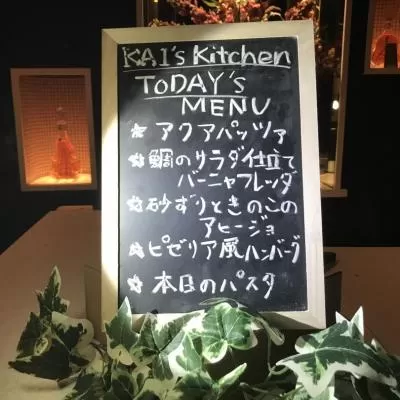 KAI's Kitchen
TODAY's
MENU
☆ アクアパッツァ
☆ 鯛のサラダ仕立て
バーニャフレッダ
☆ 砂ずりときのこの
アヒージョ
☆ ピゼリア風ハンバーグ
☆ 本日のパスタ